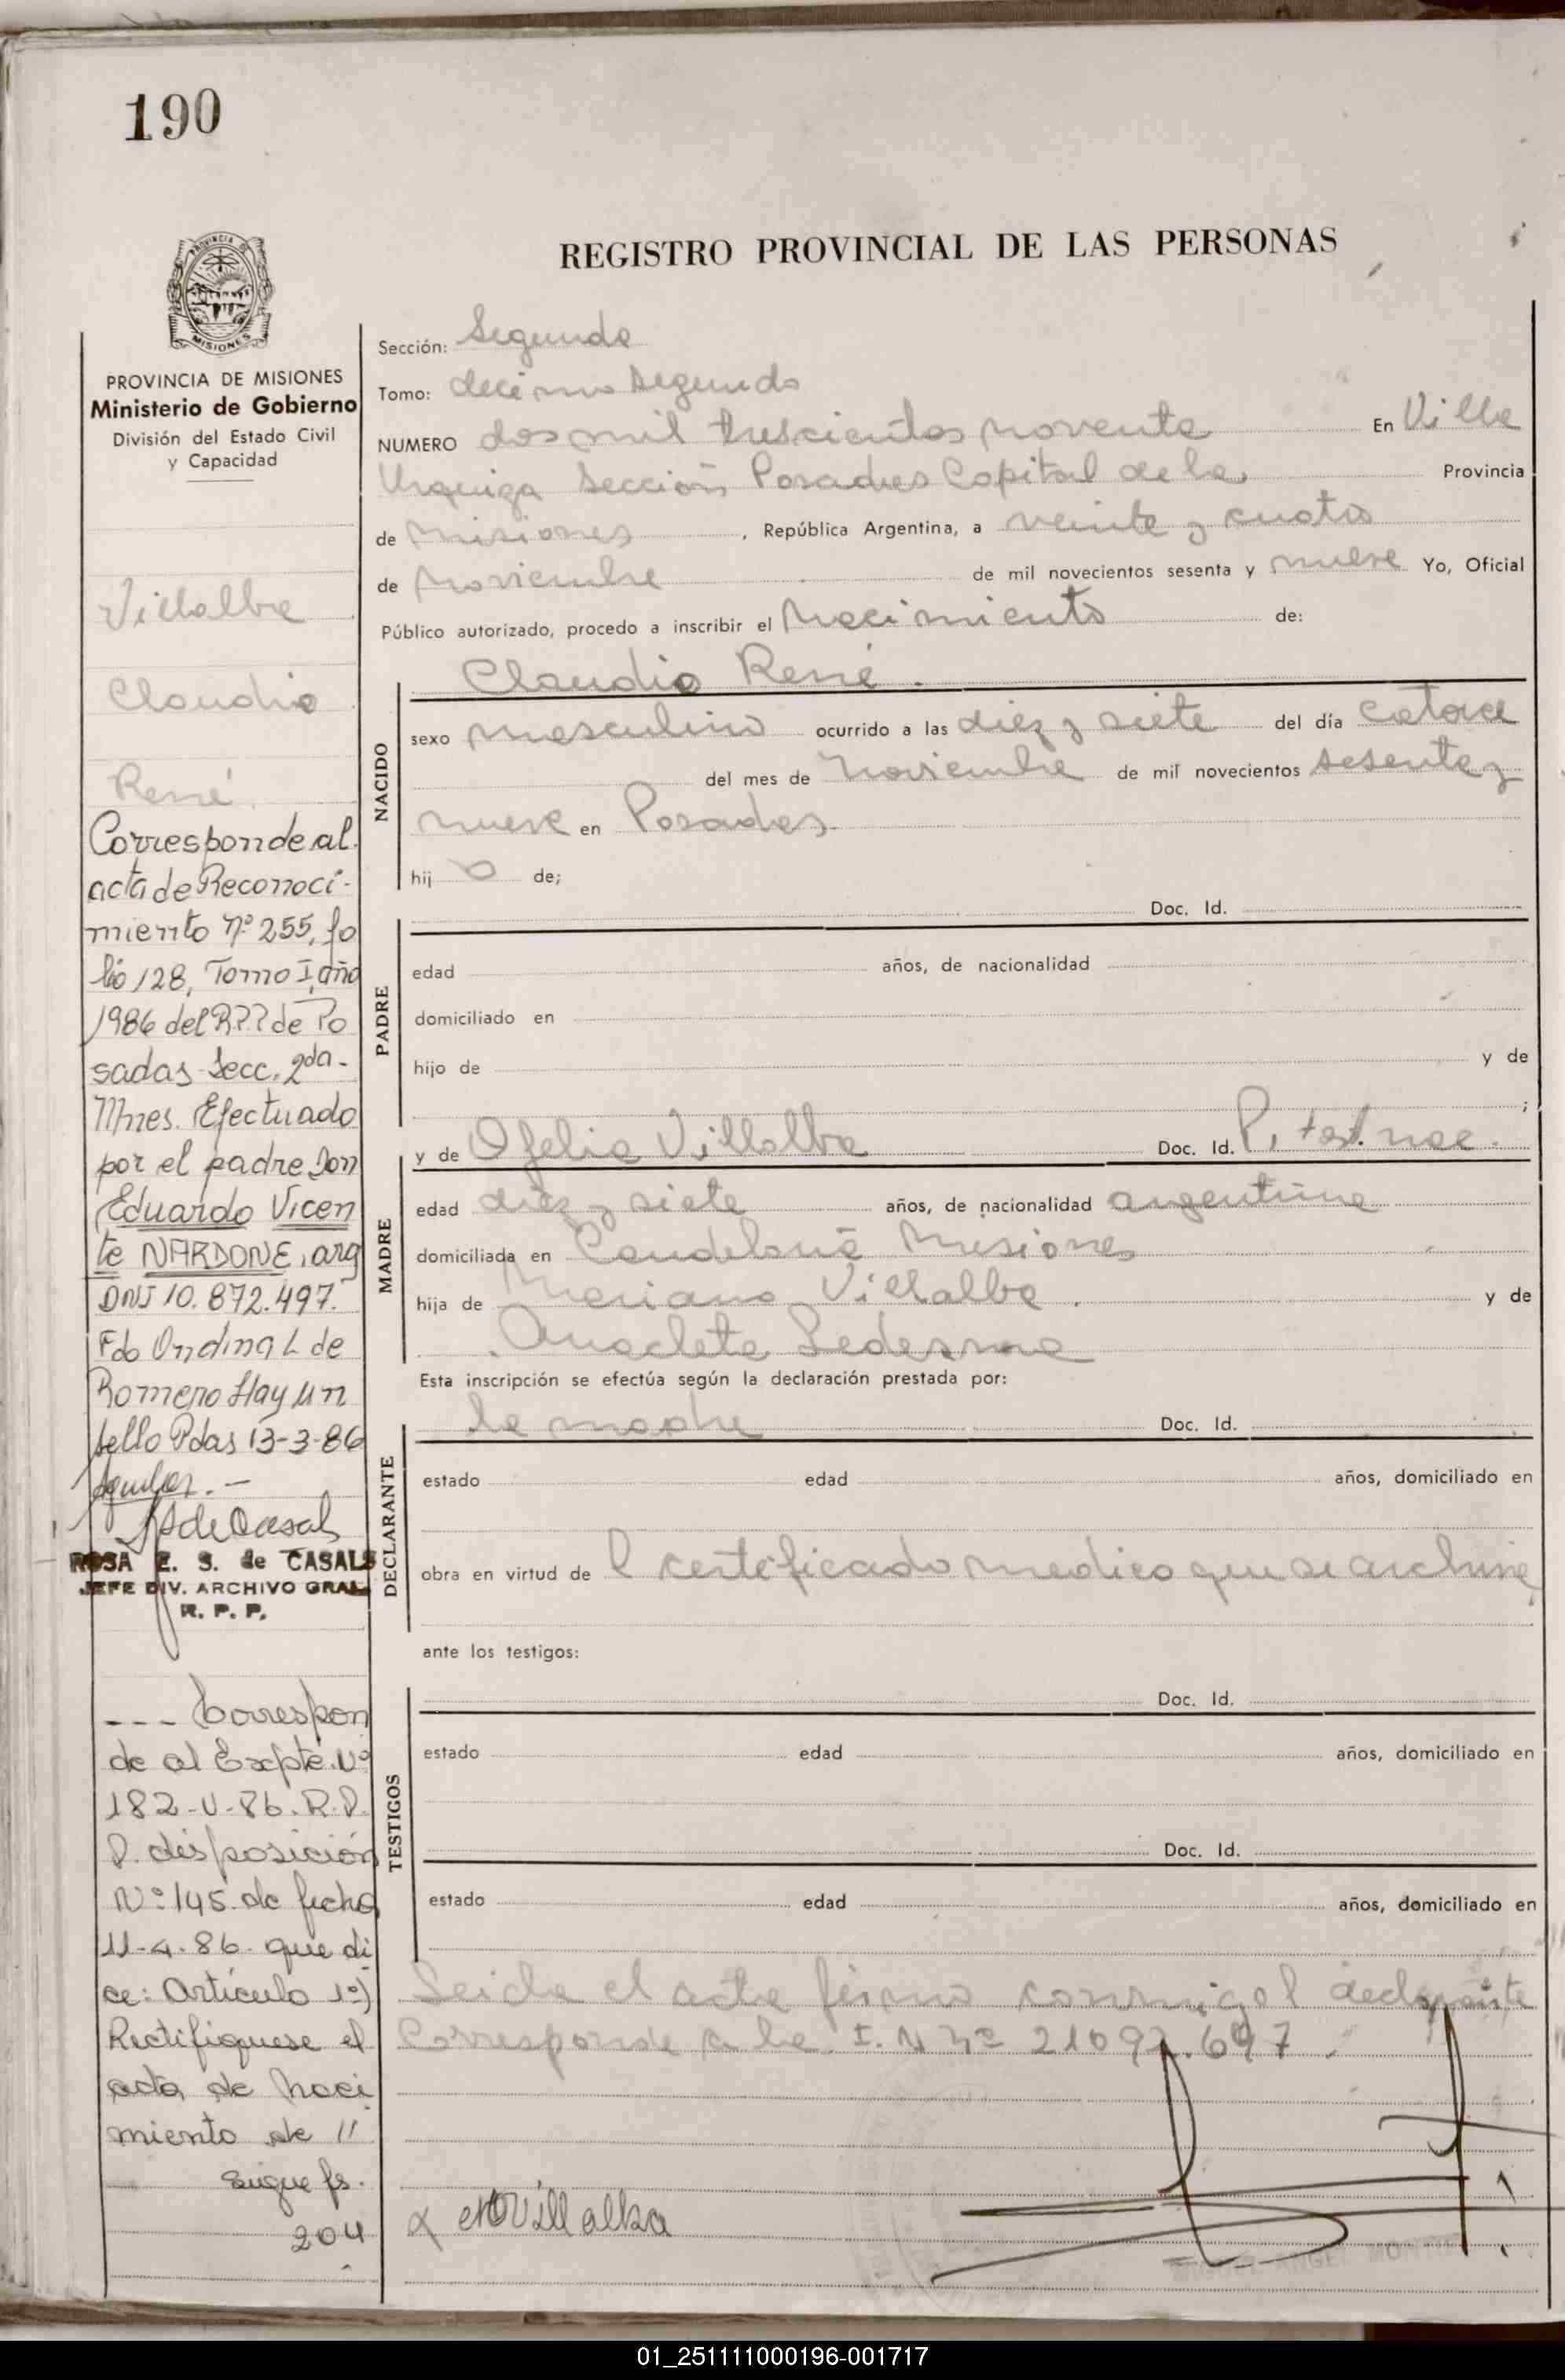 190
REGISTRO PROVINCIAL DE LAS PERSONAS
PROVINCIA DE
MISIONES
PROVINCIA DE MISIONES
Ministerio de Gobierno
División del Estado Civil
y Capacidad
Villalba
Claudio
René.
Corresponde al
acta de Reconoci-
miento Nº 255, fo
lio 128, Tomo I, año
1986 del R.P.P de Po
sadas - Secc. 2da -
Mnes. Efectuado
por el padre Don
Eduardo Vicen
te NARDONE, arg
DNI 10.872.497.
Fdo Ondina L de
Romero Hay un
sello Pdas 13-3-86
ROSA E. S. de CASALS
JEFE DIV. ARCHIVO GRAL
R. P. P.
--- Correspon
de al Expte. Nº
182-V-86. R.P.
P. disposición
Nº 145 de fecha
11-4-86 que di
ce: Artículo 1º)
Rectifiquese el
acta de Naci
miento de //
Sigue fs.
204
Sección: Segunda
Tomo: decimo segundo
NUMERO dos mil trescientos noventa En Villa
Urquiza Sección Posadas Capital de la Provincia
de Misiones, República Argentina, a veinte y cuatro
de Noviembre de mil novecientos sesenta y nueve Yo, Oficial
Público autorizado, procedo a inscribir el Nacimiento de:
Claudio René.
NACIDO
sexo masculino ocurrido a las diez y siete del día catorce
del mes de Noviembre de mil novecientos sesenta y
nueve en Posadas
hij o de;
Doc. Id.
PADRE
edad años, de nacionalidad
domiciliado en
hijo de y de
;
y de Ofelia Villalba Doc. Id.
MADRE
edad diez y siete años, de nacionalidad argentina
domiciliada en Candelaria Misiones
hija de Mariano Villalba y de
Anacleta Ledesma
Esta inscripción se efectúa según la declaración prestada por:
la madre Doc. Id.
DECLARANTE
estado edad años, domiciliado en
obra en virtud de l certificado medico que se archiva
ante los testigos:
Doc. Id.
TESTIGOS
estado edad años, domiciliado en
Doc. Id.
estado edad años, domiciliado en
Leida el acta firma conmigo el declarante
Corresponde a la I. N Nº
Villalba
01_251111000196-001717